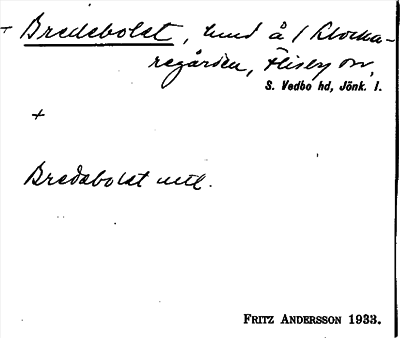 Bredebolet, hmd å / Klocka-
regården, Flisby sn,
S. Vedbo hd, Jönk. l.
+
Bredabolat utl.
FRITZ ANDERSSON 1933.